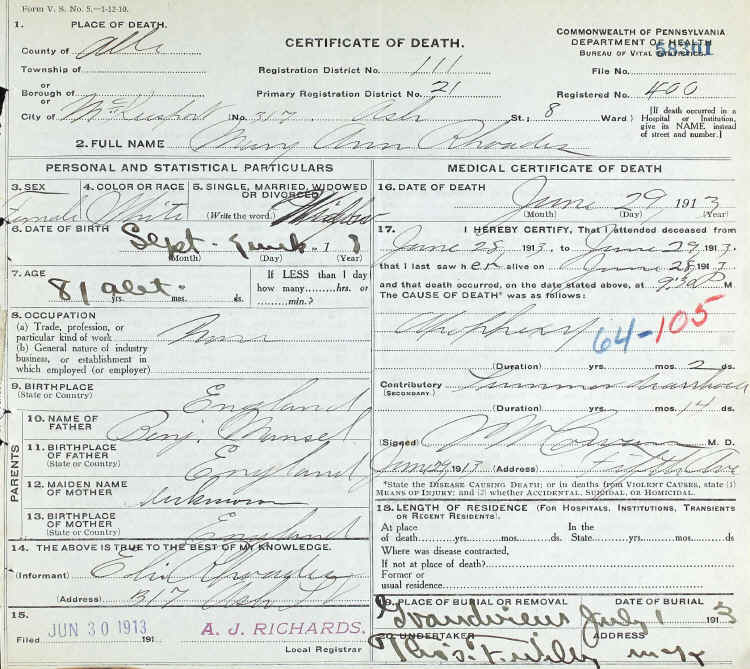 Form V. S. No. 5.—1-12-10.
1. PLACE OF DEATH.
County of Alle
Township of
or
Borough of
or
City of McKeesport No. 317 Ash St.; 8 Ward)
CERTIFICATE OF DEATH.
Registration District No. 111
Primary Registration District No. 21
COMMONWEALTH OF PENNSYLVANIA
DEPARTMENT OF HEALTH
BUREAU OF VITAL STATISTICS.
File No. 58301
Registered No. 400
[If death occurred in a Hospital or Institution, give its NAME instead of street and number.]
2. FULL NAME Mary Ann Rhoades
PERSONAL AND STATISTICAL PARTICULARS
3. SEX Female
4. COLOR OR RACE White
5. SINGLE, MARRIED, WIDOWED OR DIVORCED
(Write the word.) Widow
6. DATE OF BIRTH Sept. 1 8
(Month) (Day) (Year)
7. AGE 81 abt.
yrs. mos. ds.
If LESS than 1 day
how many hrs. or
min.?
8. OCCUPATION
(a) Trade, profession, or
particular kind of work
(b) General nature of industry
business, or establishment in
which employed (or employer)
9. BIRTHPLACE
(State or Country) England
PARENTS
10. NAME OF
FATHER Benj.
11. BIRTHPLACE
OF FATHER
(State or Country) England
12. MAIDEN NAME
OF MOTHER unknown
13. BIRTHPLACE
OF MOTHER
(State or Country) England
14. THE ABOVE IS TRUE TO THE BEST OF MY KNOWLEDGE.
(Informant) Rhoades
(Address) 317 Ash St
15.
Filed JUN 30 1913 191 A. J. RICHARDS.
Local Registrar
MEDICAL CERTIFICATE OF DEATH
16. DATE OF DEATH
June 29, 1913
(Month) (Day) (Year)
17. I HEREBY CERTIFY, That I attended deceased from
June 28 1913, to June 29 1913,
that I last saw her alive on June 28 1913
and that death occurred, on the date stated above, at M
The CAUSE OF DEATH* was as follows:
Apoplexy
64-105
(Duration) yrs. mos. 2 ds.
Contributory Summer diarrhoea
(SECONDARY.)
(Duration) yrs. mos. 14 ds.
(Signed) M. D.
1913 (Address) Fifth Ave
*State the DISEASE CAUSING DEATH; or in deaths from VIOLENT CAUSES, state (1)
MEANS OF INJURY; and (2) whether ACCIDENTAL, SUICIDAL, or HOMICIDAL.
18. LENGTH OF RESIDENCE (FOR HOSPITALS, INSTITUTIONS, TRANSIENTS
OR RECENT RESIDENTS).
At place
of death yrs. mos. ds.
In the
State yrs. mos. ds.
Where was disease contracted,
If not at place of death?
Former or
usual residence.
19. PLACE OF BURIAL OR REMOVAL
DATE OF BURIAL
Grandview July 1 1913
20. UNDERTAKER ADDRESS